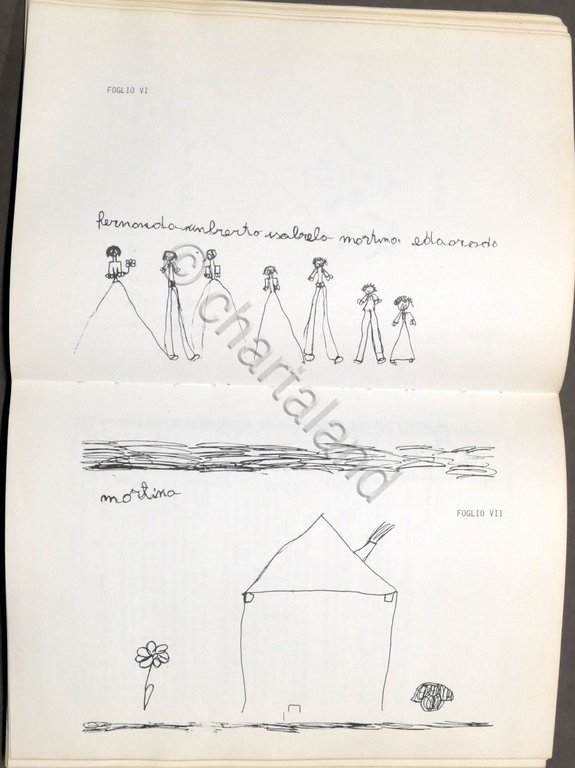 FOGLIO VI
fernanda umberto isabela martina edaoredo
© chartaland
martina
FOGLIO VII